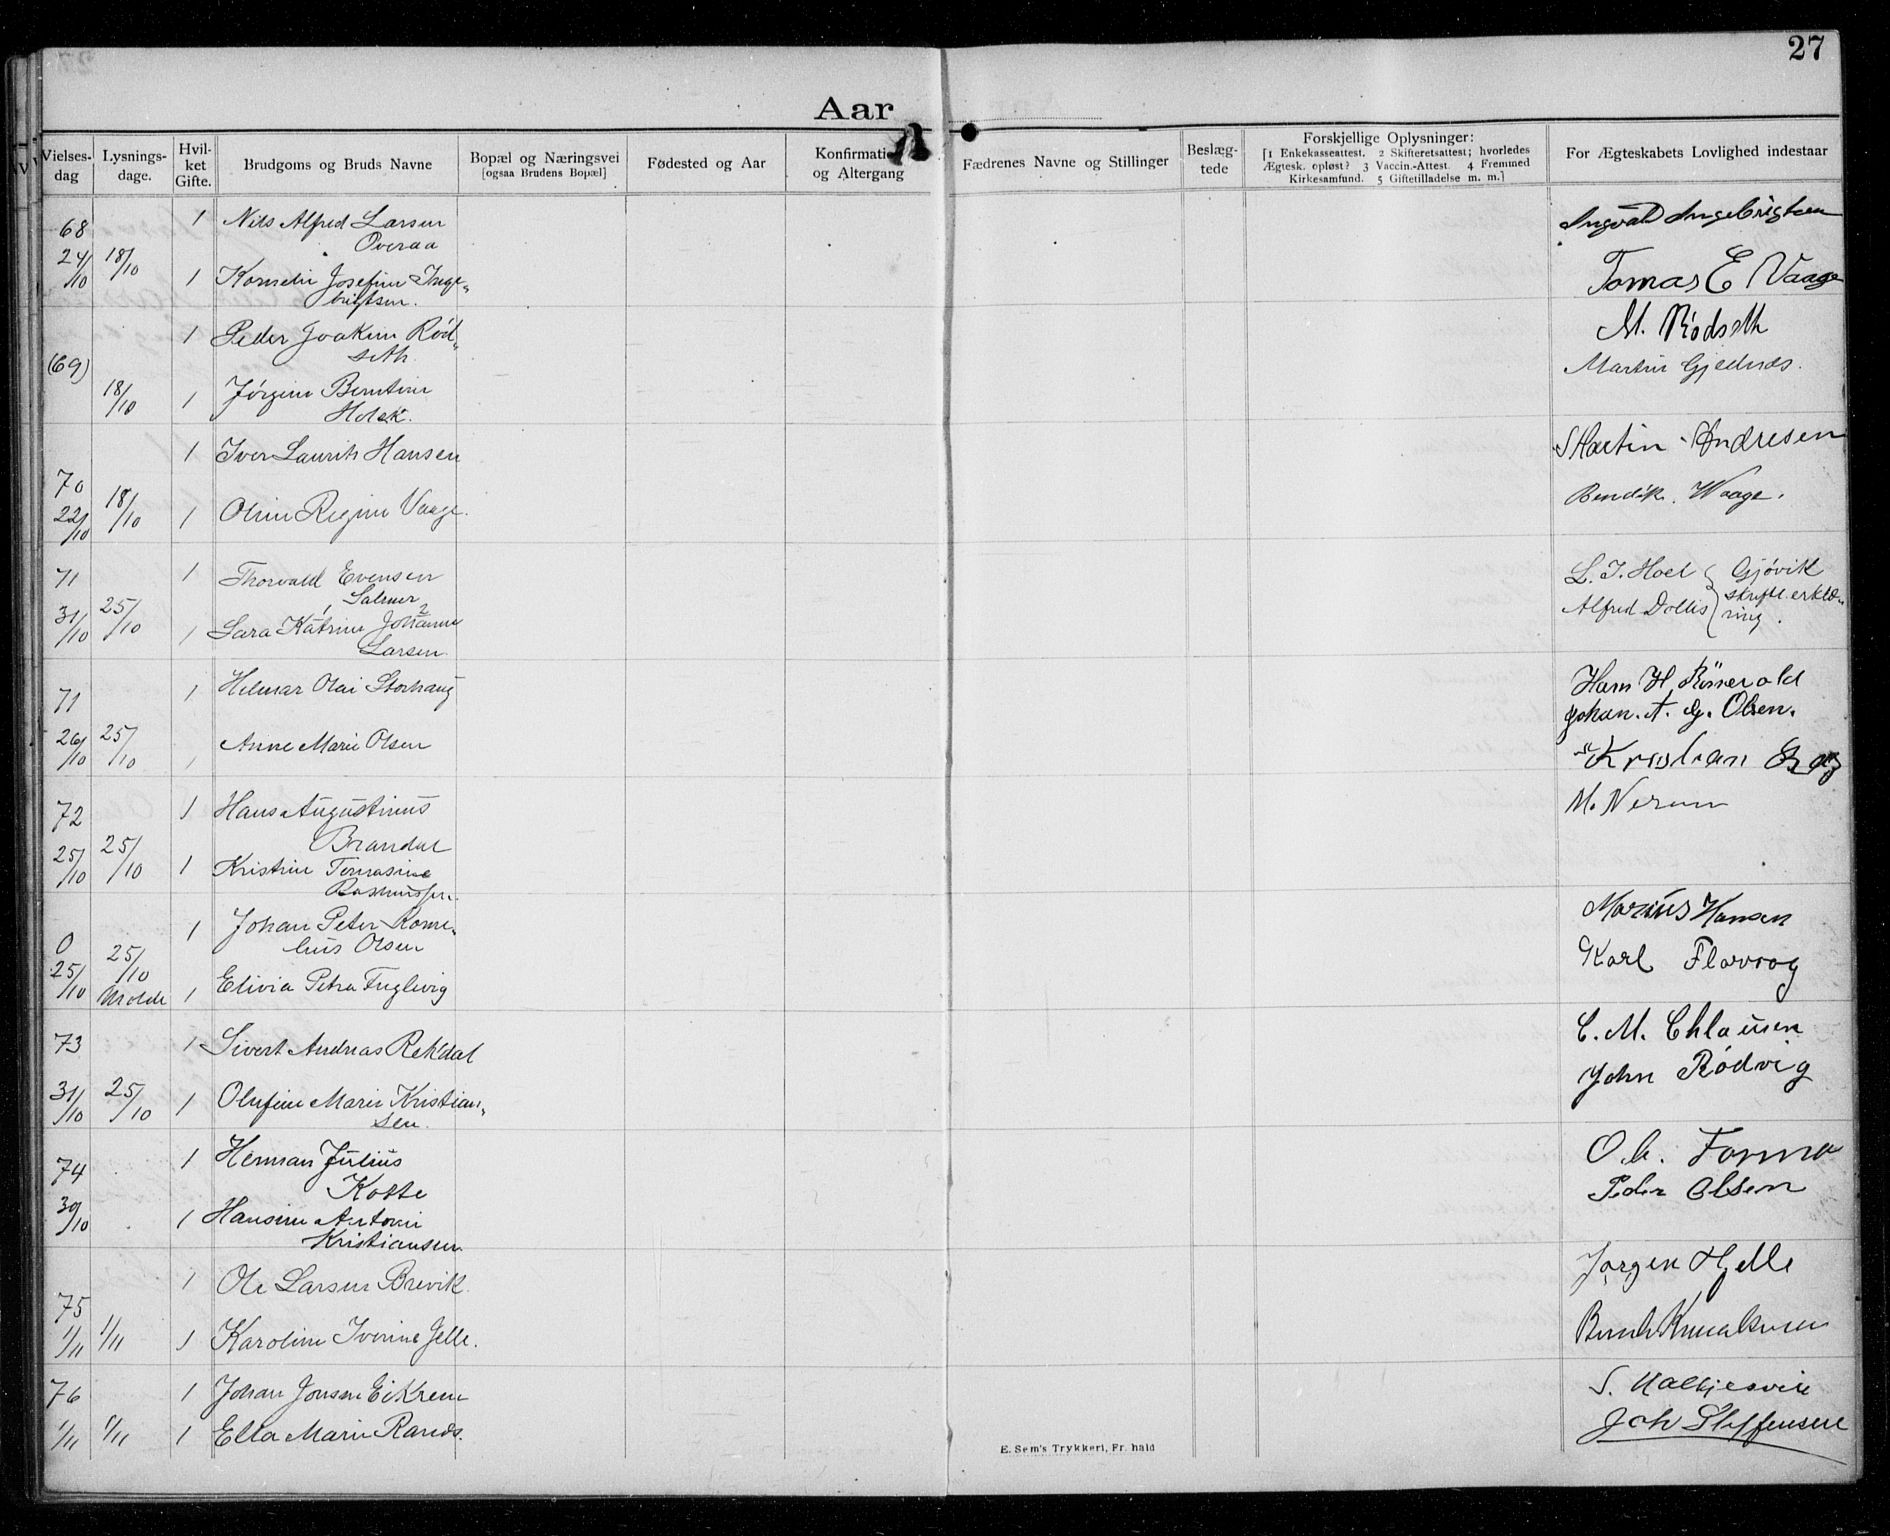 27
Aar
Vielses-
dag
Lysnings-
dage.
Hvil-
ket
Gifte.
Brudgoms og Bruds Navne
Bopæl og Næringsvei
[ogsaa Brudens Bopæl]
Fødested og Aar
Konfirmati
og Altergang
Fædrenes Navne og Stillinger
Beslæg-
tede
Forskjellige Oplysninger:
[1 Enkekasseattest. 2 Skifteretsattest; hvorledes
Ægtesk. opløst? 3 Vaccin.-Attest. 4 Fremmed
Kirkesamfund. 5 Giftetilladelse m. m.]
For Ægteskabets Lovlighed indestaar
68 1 Nils Alfred Larsen
Overaa
Ingvald Ingebrigtsen
24/10 18/10 1 Kornelie Josefine Inge-
brigtsen.
Tomas E Vaage
(69) 1 Peder Joakim Rød-
seth.
M. Rödseth
18/10 1 Jørgine Berntine
Holsk.
Martin Gjednes.
70 1 Iver Laurits Hansen
Martin Andresen
22/10 18/10 1 Oline Regine Vaage.
Bendik. Waage.
71 1 Thorvald Evensen
Salmer
L. J. Hoel
Alfred Dollis
Gjövik
skriftl. erklæ-
ring.
31/10 25/10 1 Sara Katrine Johanne
Larsen.
71 1 Hilmar Olai Storhaug
Hans H.
Johan. A. G. Olsen.
26/10 25/10 1 Anne Marie Olsen
Kristian
72 1 Hans Augustinus
Brandal
M. Nerem
25/10 25/10 1 Kristine Tomasine
Rasmussen.
0 1 Johan Peter Korne-
lius Olsen
Marius Hansen
25/10 25/10 Molde 1 Elivia Petra Fuglevig
Karl Flovvog
73 1 Sivert Andreas Rekdal
C. M. Chlausen
31/10 25/10 1 Olufine Marie Kristian-
sen.
John Rødvig
74 1 Herman Julius
Kotte
O. A. Formo
30/10 1 Hansine Antonie
Kristiansen.
Peder Olsen
75 1 Ole Larsen Brevik.
Jørgen Hjelle
1/11 1/11 1 Karoline Iverine Jelle.
Bernh Knudsen
76 1 Johan Jonsen Eikrem
S. Malkjesvik
1/11 1/11 1 Ella Marie Rands.
Joh Steffensen
E. Sem's Trykkeri, Fr. hald